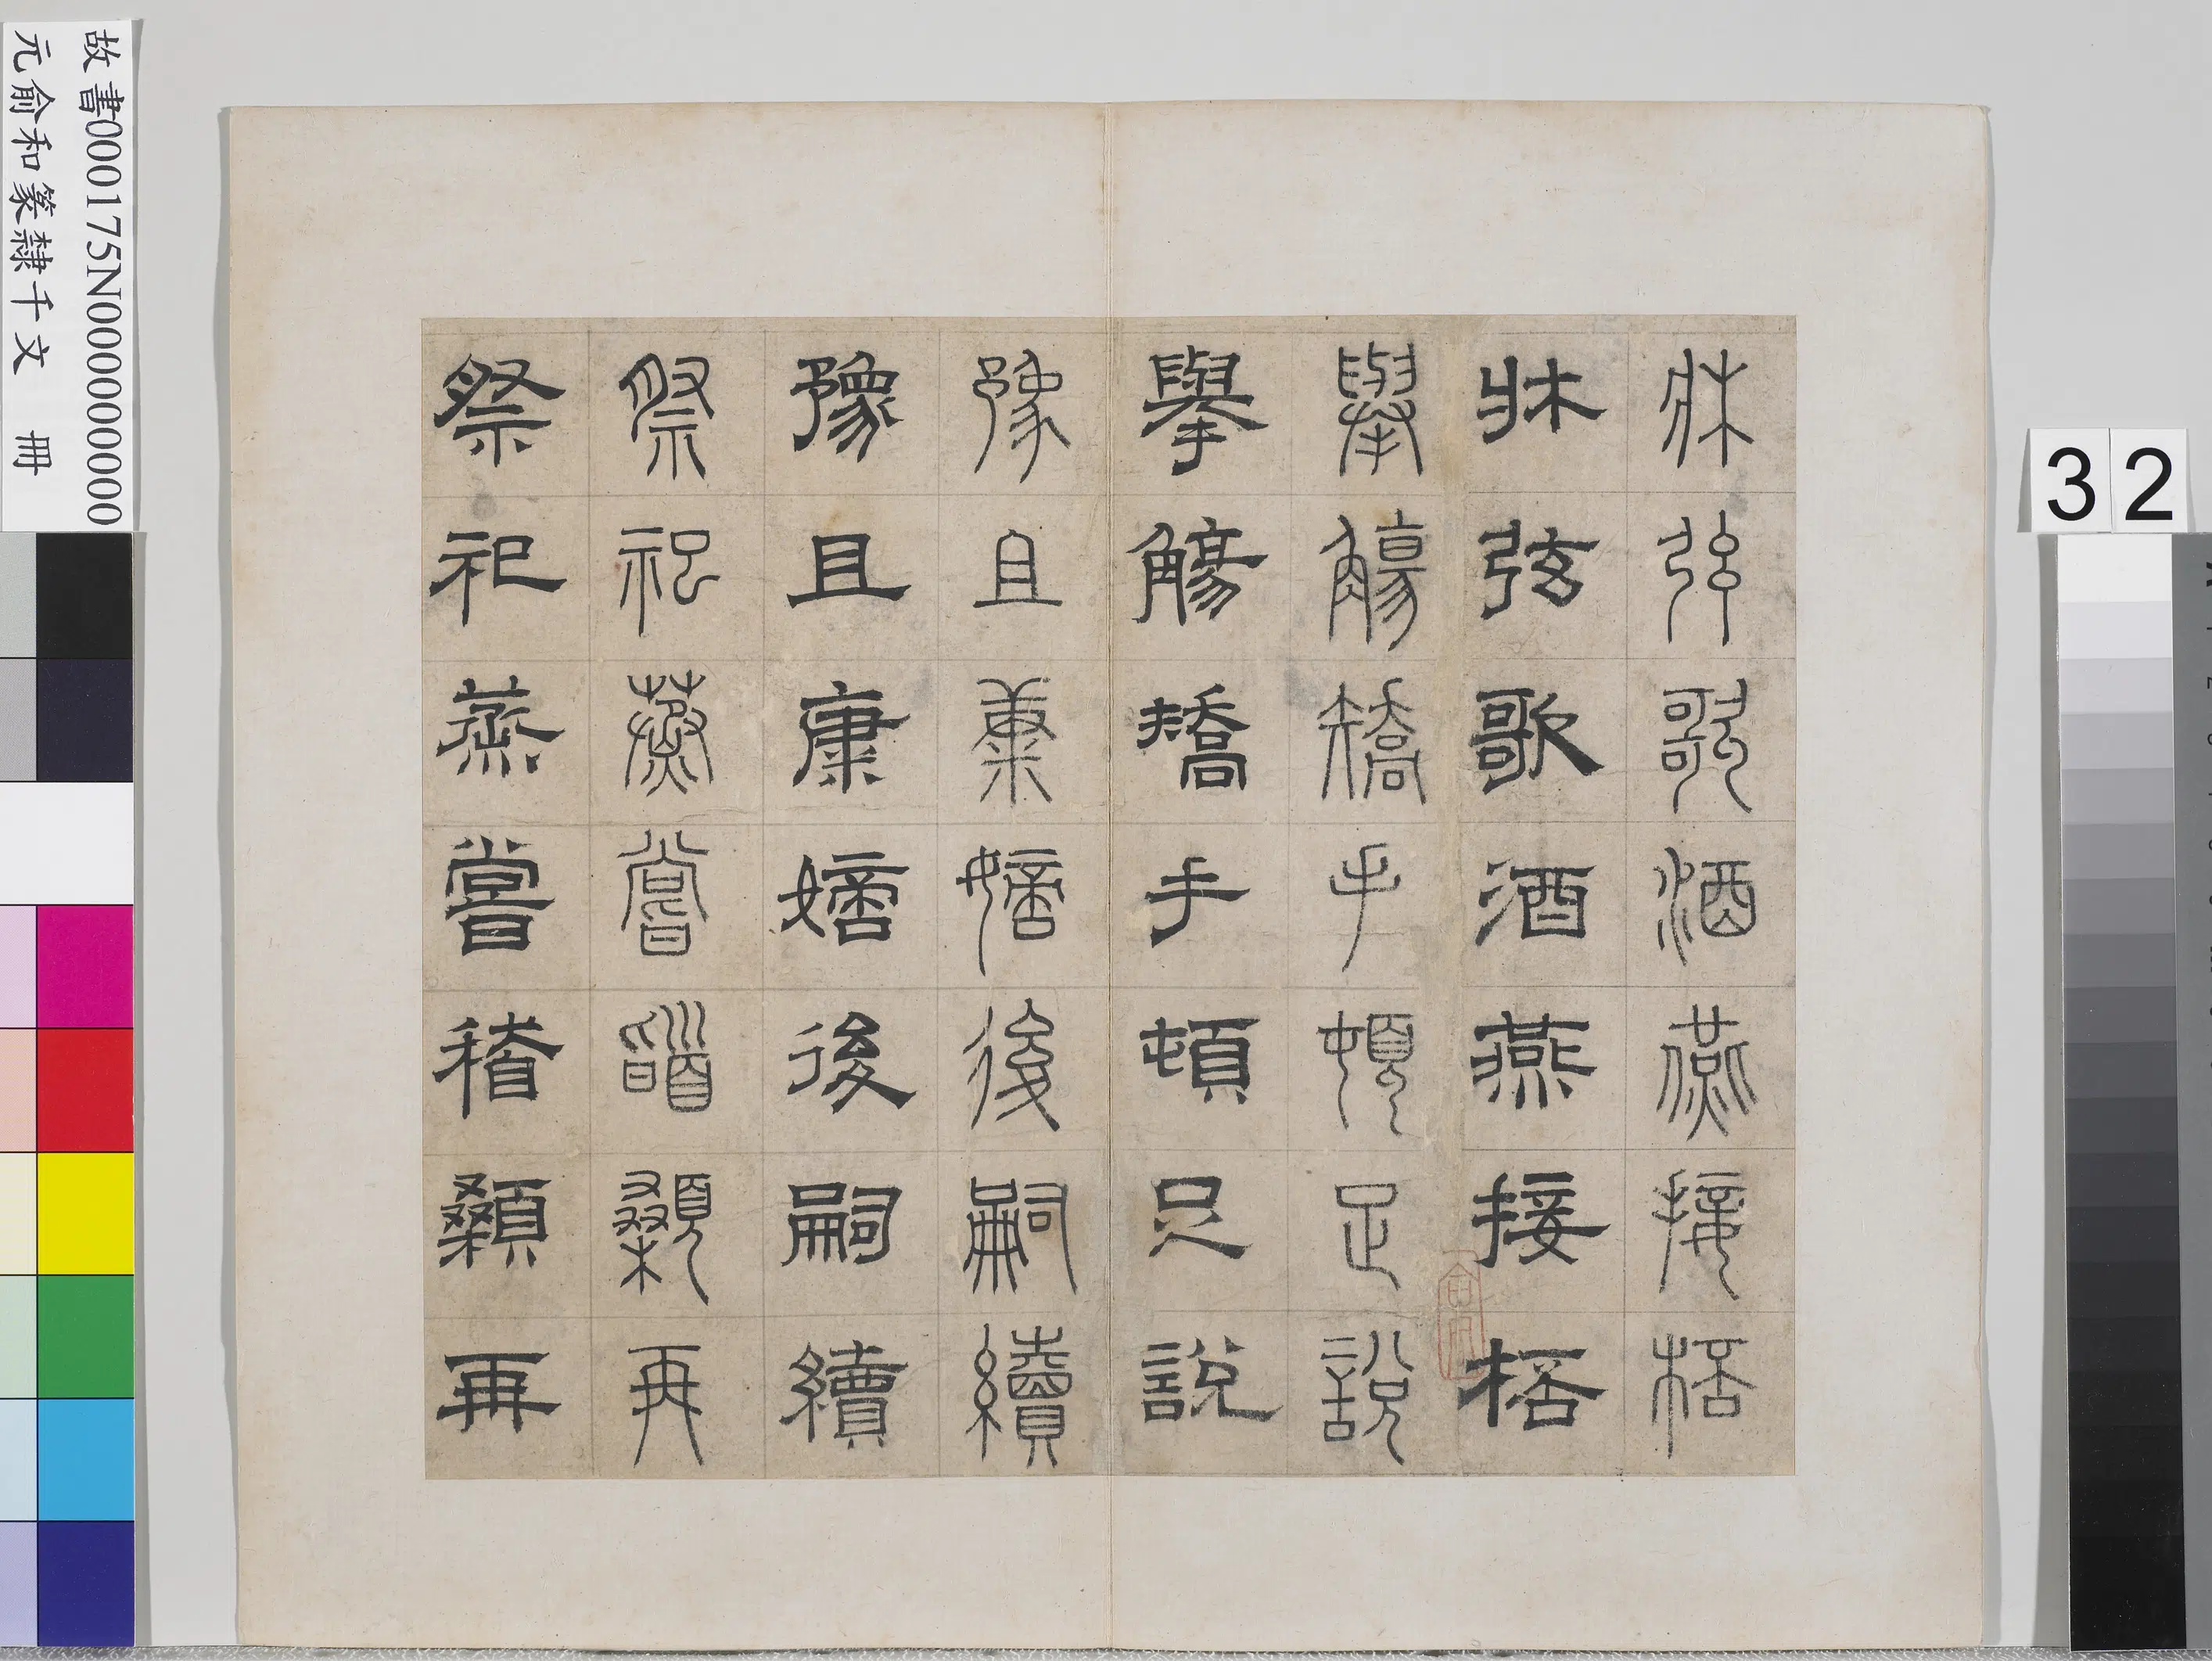 牀弦歌酒燕接桮
牀弦歌酒燕接桮
舉觴矯手頓足說
舉觴矯手頓足說
豫且康嫡後嗣續
豫且康嫡後嗣續
祭祀蒸嘗䭫顙再
祭祀蒸嘗稽顙再
故書000175N000000000
元俞和篆隸千文 冊
32